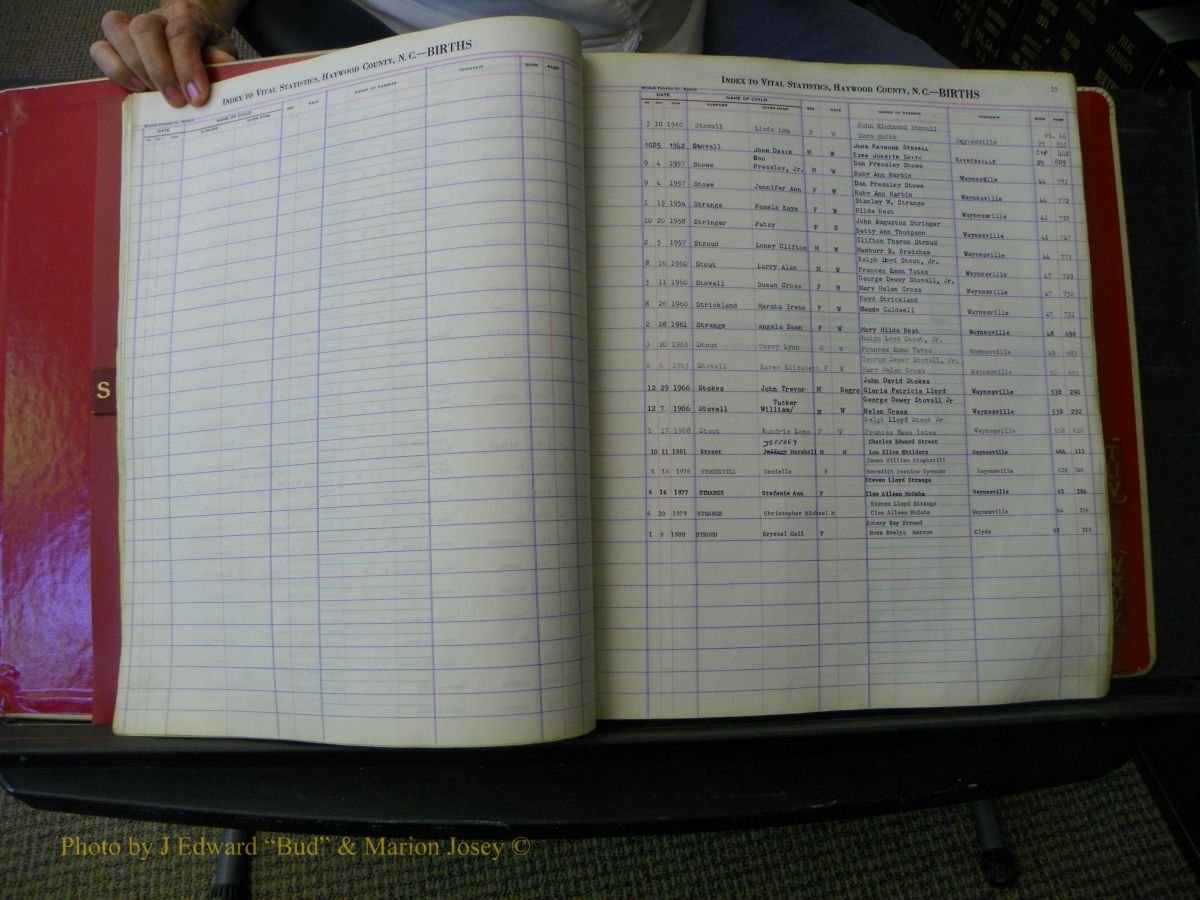 INDEX TO VITAL STATISTICS, HAYWOOD COUNTY, N. C.—BIRTHS
DATE NAME OF CHILD SEX RACE NAMES OF PARENTS TOWNSHIP BOOK PAGE
SURNAME GIVEN NAME
S
INDEX TO VITAL STATISTICS, HAYWOOD COUNTY, N. C.—BIRTHS 35
DATE NAME OF CHILD SEX RACE NAMES OF PARENTS TOWNSHIP BOOK PAGE
SURNAME GIVEN NAME
John Richmond Stovall
3 10 1940 Stovall Linda Lou F W Ezra Smith Waynesville
JOHN RAYMOND STOVALL
1025 1942 Stovall JOHN DAVID M W EZRA JUANITA SMITH WAYNESVILLE 29 803
Dan Dan Pressley Stowe
9 4 1957 Stowe Pressley, Jr. M W Ruby Ann Harbin Waynesville 44 771
Dan Pressley Stowe
9 4 1957 Stowe Jennifer Ann F W Ruby Ann Harbin Waynesville 44 772
Stanley W. Strange
1 15 1954 Strange Pamela Kaye F W Hilda Best Waynesville 41 735
John Augustus Stringer
10 20 1958 Stringer Patsy F C Betty Ann Thompson Waynesville 45 747
Clifton Tharon Stroud
2 5 1957 Stroud Lonny Clifton M W Maeburr K. Bradshaw Waynesville 44 773
Ralph Lloyd Stout, Jr.
8 16 1960 Stout Larry Alan M W Frances Emma Yates Waynesville 47 729
George Dewey Stovall, Jr.
3 11 1960 Stovall Susan Cross F W Mary Helen Cross Waynesville 47 730
Boyd Strickland
8 26 1960 Strickland Marsha Irene F W Maude Caldwell Waynesville 47 731
2 28 1961 Strange Angela Dawn F W Mary Hilda Best Waynesville 48 698
Ralph Lloyd Stout, Jr.
3 20 1962 Stout Terry Lynn M W Frances Emma Yates Waynesville 49 683
George Dewey Stovall, Jr.
2 6 1963 Stovall Karen Elizabeth F W Mary Helen Cross Waynesville 50
John David Stokes
12 29 1966 Stokes John Trevor M Negro Gloria Patricia Lloyd Waynesville 53B 290
Tucker George Dewey Stovall Jr
12 7 1966 Stovall William/ M W Helen Cross Waynesville 53B 292
Ralph Lloyd Stout Jr
1 17 1968 Stout Aundria Lena F W Frances Emma Yates Waynesville 55B 610
JEFFREY Charles Edward Street
10 11 1961 Street Jeffery Marshall M W Lou Ellen Childers Waynesville 48A 113
3 18 1976 STOCKSTILL Danielle F Meredith Jeanine Spencer Waynesville 62B 344
Steven Lloyd Strange
6 16 1977 STRANGE Stefanie Ann F Cleo Aileen McGaha Waynesville 63 284
Steven Lloyd Strange
4 30 1979 STRANGE Christopher Michael M Cleo Aileen McGaha Waynesville 64
Johnny Ray Stroud
1 9 1980 STROUD Krystal Gail F Nora Evelyn Herron Clyde 65 313
VITAL STATISTICS
TUV
Photo by J Edward “Bud” & Marion Josey ©